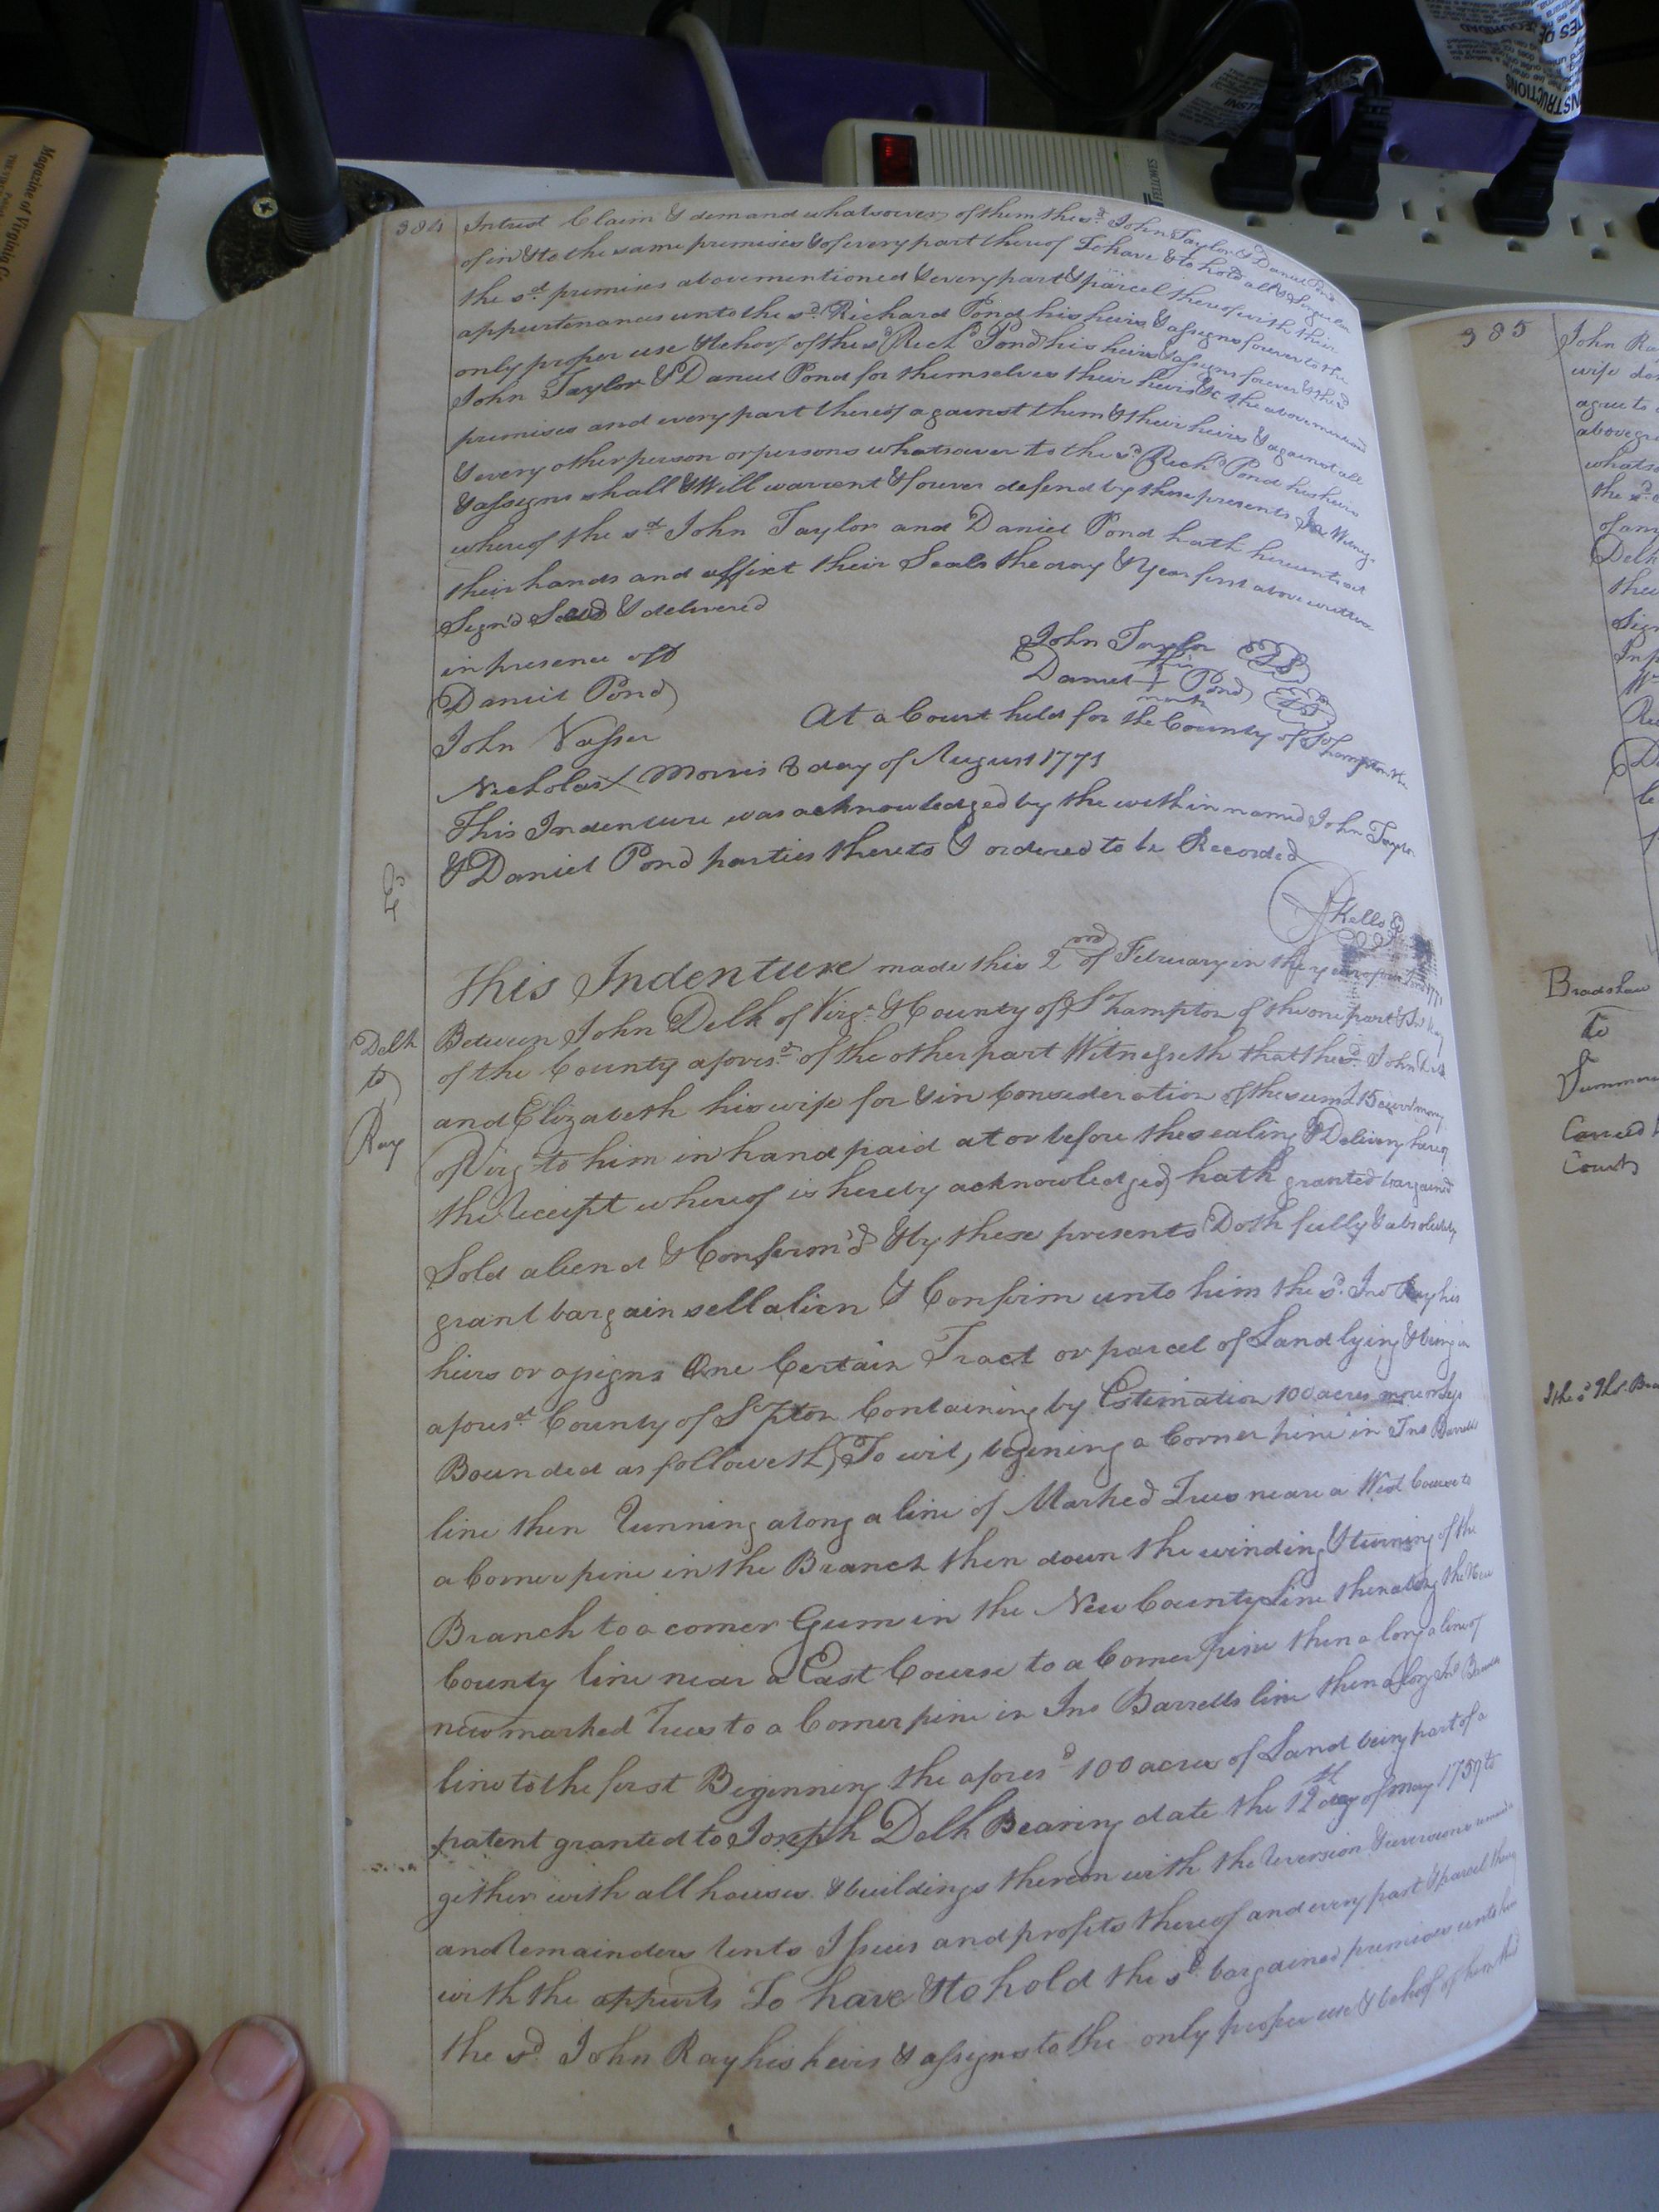 384
Intrest Claim & demand whatsoever of them the sd. John Taylor & Daniel Pond
of in & to the same premises & of every part thereof To have & to hold all & Singular
the sd. premises abovementioned & every part & parcel thereof with their
appurtenances unto the sd. Richard Pond his heirs & assigns forever to the
only proper use & behoof of the sd Richd Pond his heirs & assigns forever & the sd
John Taylor & Daniel Pond for themselves their heirs &c the abovementioned
premises and every part thereof against them & their heirs & against all
& every other person or persons whatsoever to the sd Richd Pond his heirs
& assigns shall & Will warrent & forever defend by these presents In Witness
whereof the sd. John Taylor and Daniel Pond hath hereunto set
their hands and affixt their Seals the day & Year first above written
Sign'd Seald & delivered
in presence off
John Taylor LS
Daniel his + mark Pond LS
Daniel Pond
John Vasser
At a Court held for the County of Sohampton the
Nicholas X Morris 8 day of August 1771
This Indenture was acknowledged by the within named John Taylor
& Daniel Pond parties thereto & ordered to be Recorded
Kello
This Indenture made this 2nd of February in the year of our Lord 1771
Delk
to
Ray
Between John Delk of Virga. & County of Sohampton of the one part & Jno Ray
of the County aforesd. of the other part Witnesseth that the sd. John Delk
and Elizabeth his wife for & in Consideration of the sum £15 curt money
of Virg to him in hand paid at or before the sealing & Delivery hereof
the receipt whereof is hereby acknowledged hath granted bargained
Sold aliend & Confirm'd & by these presents Doth fully & absolutely
grant bargain sell alien & Confirm unto him the sd. Jno Ray his
heirs or assigns One Certain Tract or parcel of Land lying & being in
aforesd. County of Sohpton Containing by Estimation 100 acres more or less
Bounded as followeth, To wit, begining a Corner pine in Jno Barretts
line then running along a line of Marked Trees neare a West Course to
a Corner pine in the Branch then down the winding & turning of the
Branch to a corner Gum in the New County Line then along the New
County line near a East Course to a Corner Pine then a long a line of
new marked Trees to a Corner pine in Jno Barretts line then along Jno Barretts
line to the first Beginning the aforesd 100 acres of Land being part of a
patent granted to Joseph Delk Bearing date the 12th day of may 1759 to
gether with all houses & buildings thereon with the reversion & reversions
and remainders rents Issues and profits thereof and every part & parcel thereof
with the appurts To have & to hold the sd. bargained premises unto him
the sd. John Ray his heirs & assigns to the only proper use & behoof of him the sd
385
John Ra
wife do
agree to
whats
of any
Delk
Sign
Bradshaw
To
Court
Magazine of Virginia
FELLOWES
INSTRUCTIONS